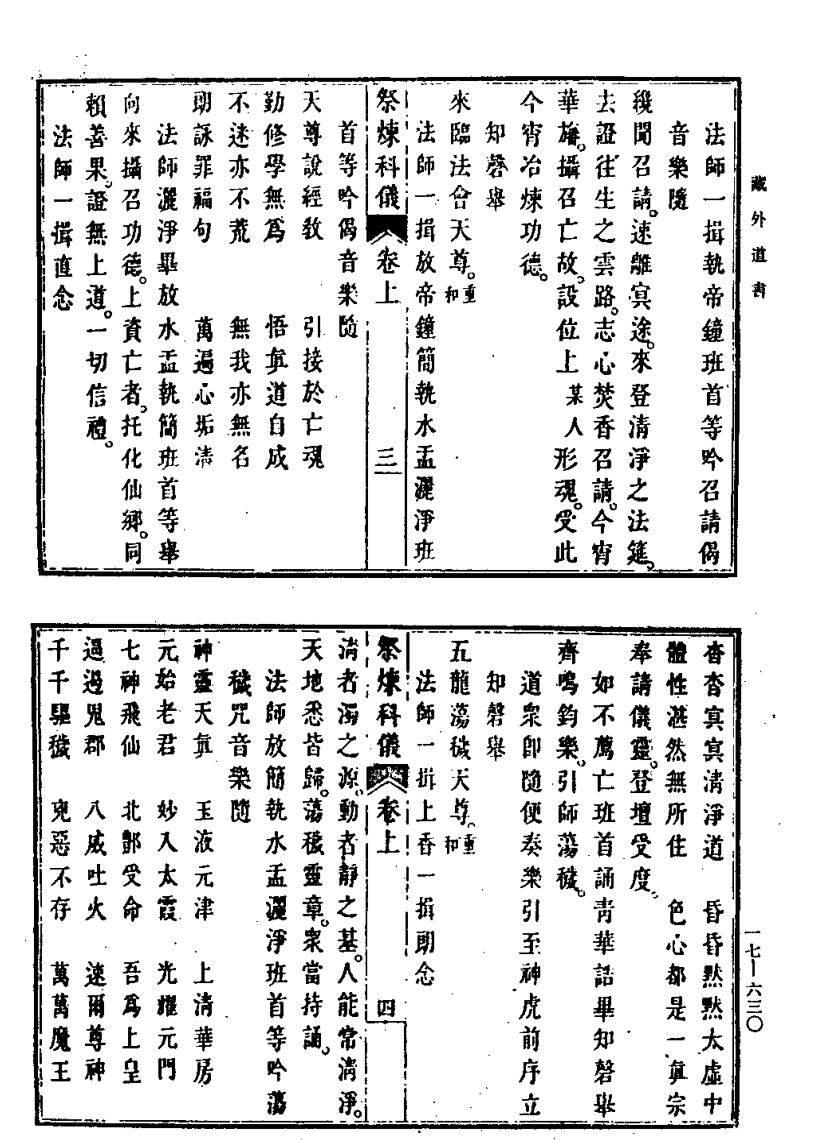 藏外道書
法師一揖執帝鐘班首等吟召請偈
音樂隨
纔聞召請。速離冥途。來登清淨之法筵。
去證往生之雲路。志心焚香召請。今宵
華旛。攝召亡故。設位上某人形魂。受此
今宵冶煉功德。
知磬舉
來臨法會天尊。重和
法師一揖放帝鐘簡執水盂灑淨班
祭煉科儀 卷上 三
首等吟偈音樂隨
天尊說經敎 引接於亡魂
勤修學無爲 悟眞道自成
不迷亦不荒 無我亦無名
朗詠罪福句 萬遍心垢清
法師灑淨畢放水盂執簡班首等舉
向來攝召功德。上資亡者。托化仙鄉。同
賴善果。證無上道。一切信禮。
法師一揖直念
一七—六三〇
杳杳冥冥清淨道 昏昏默默太虛中
體性湛然無所住 色心都是一眞宗
奉請儀靈。登壇受度。
如不薦亡班首誦青華誥畢知磬舉
齊鳴鈞樂。引師蕩穢。
道衆卽隨便奏樂引至神虎前序立
知磬舉
五龍蕩穢天尊。重和
法師一揖上香一揖朗念
祭煉科儀 卷上 四
清者濁之源。動者靜之基。人能常清淨。
天地悉皆歸。蕩穢靈章。衆當持誦。
法師放簡執水盂灑淨班首等吟蕩
穢咒音樂隨
神靈天眞 玉液元津 上清華房
元始老君 妙入太霞 光耀元門
七神飛仙 北酆受命 吾爲上皇
過過鬼郡 八威吐火 速爾尊神
千千驅穢 兇惡不存 萬萬魔王